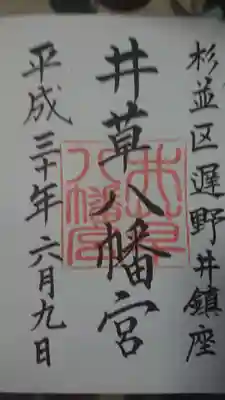 杉並区遅野井鎮座
井草八幡宮
平成三十年六月九日